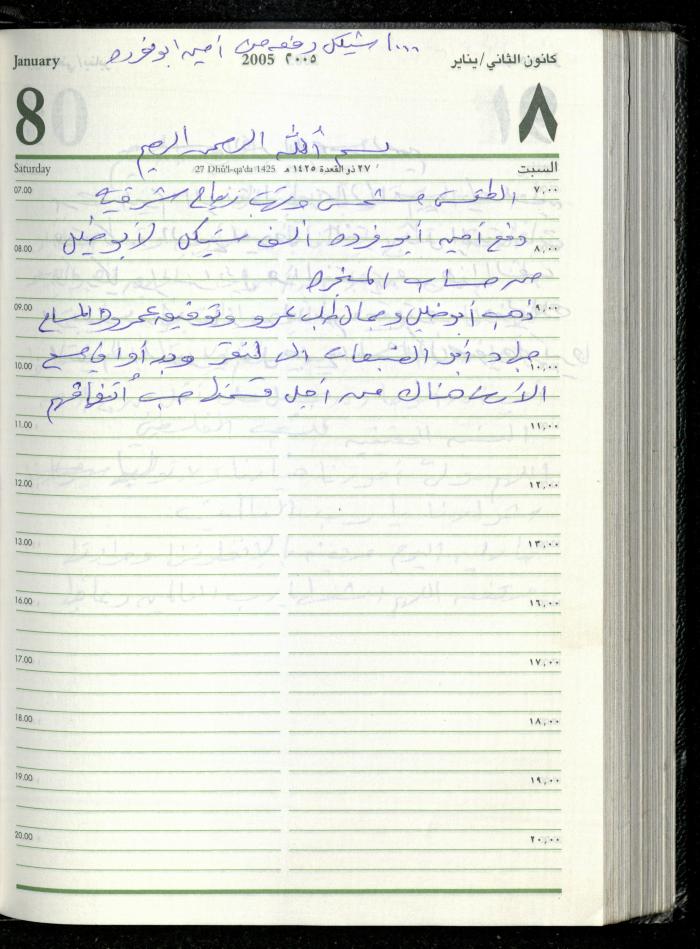 ١٠٠٠ شيكل دفعه من أمين ابو فوده
January 2005 ٢٠٠٥ كانون الثاني/يناير
8 ٨
بسم الله الرحمن الرحيم
Saturday 27 Dhū'l-qa'da 1425 ٢٧ ذو القعدة ١٤٢٥ هـ السبت
07.00 ٧,٠٠
الطقس مشمس وتهب رياح شرقيه
دفع أمين أبو فرده ألف شيكل لأبو خليل
08.00 ٨,٠٠
من حساب المنجره
09.00 ٩,٠٠
ذهب أبو خليل وجمال طلب عمرو وتوفيق عمرو المساح
جهاد أبو الضبعات الى لنقر وبدأوا في مسح
10.00 ١٠,٠٠
الأرض هناك من أجل قسمتها حسب أتفاقهم
11.00 ١١,٠٠
12.00 ١٢,٠٠
13.00 ١٣,٠٠
16.00 ١٦,٠٠
17.00 ١٧,٠٠
18.00 ١٨,٠٠
19.00 ١٩,٠٠
20.00 ٢٠,٠٠